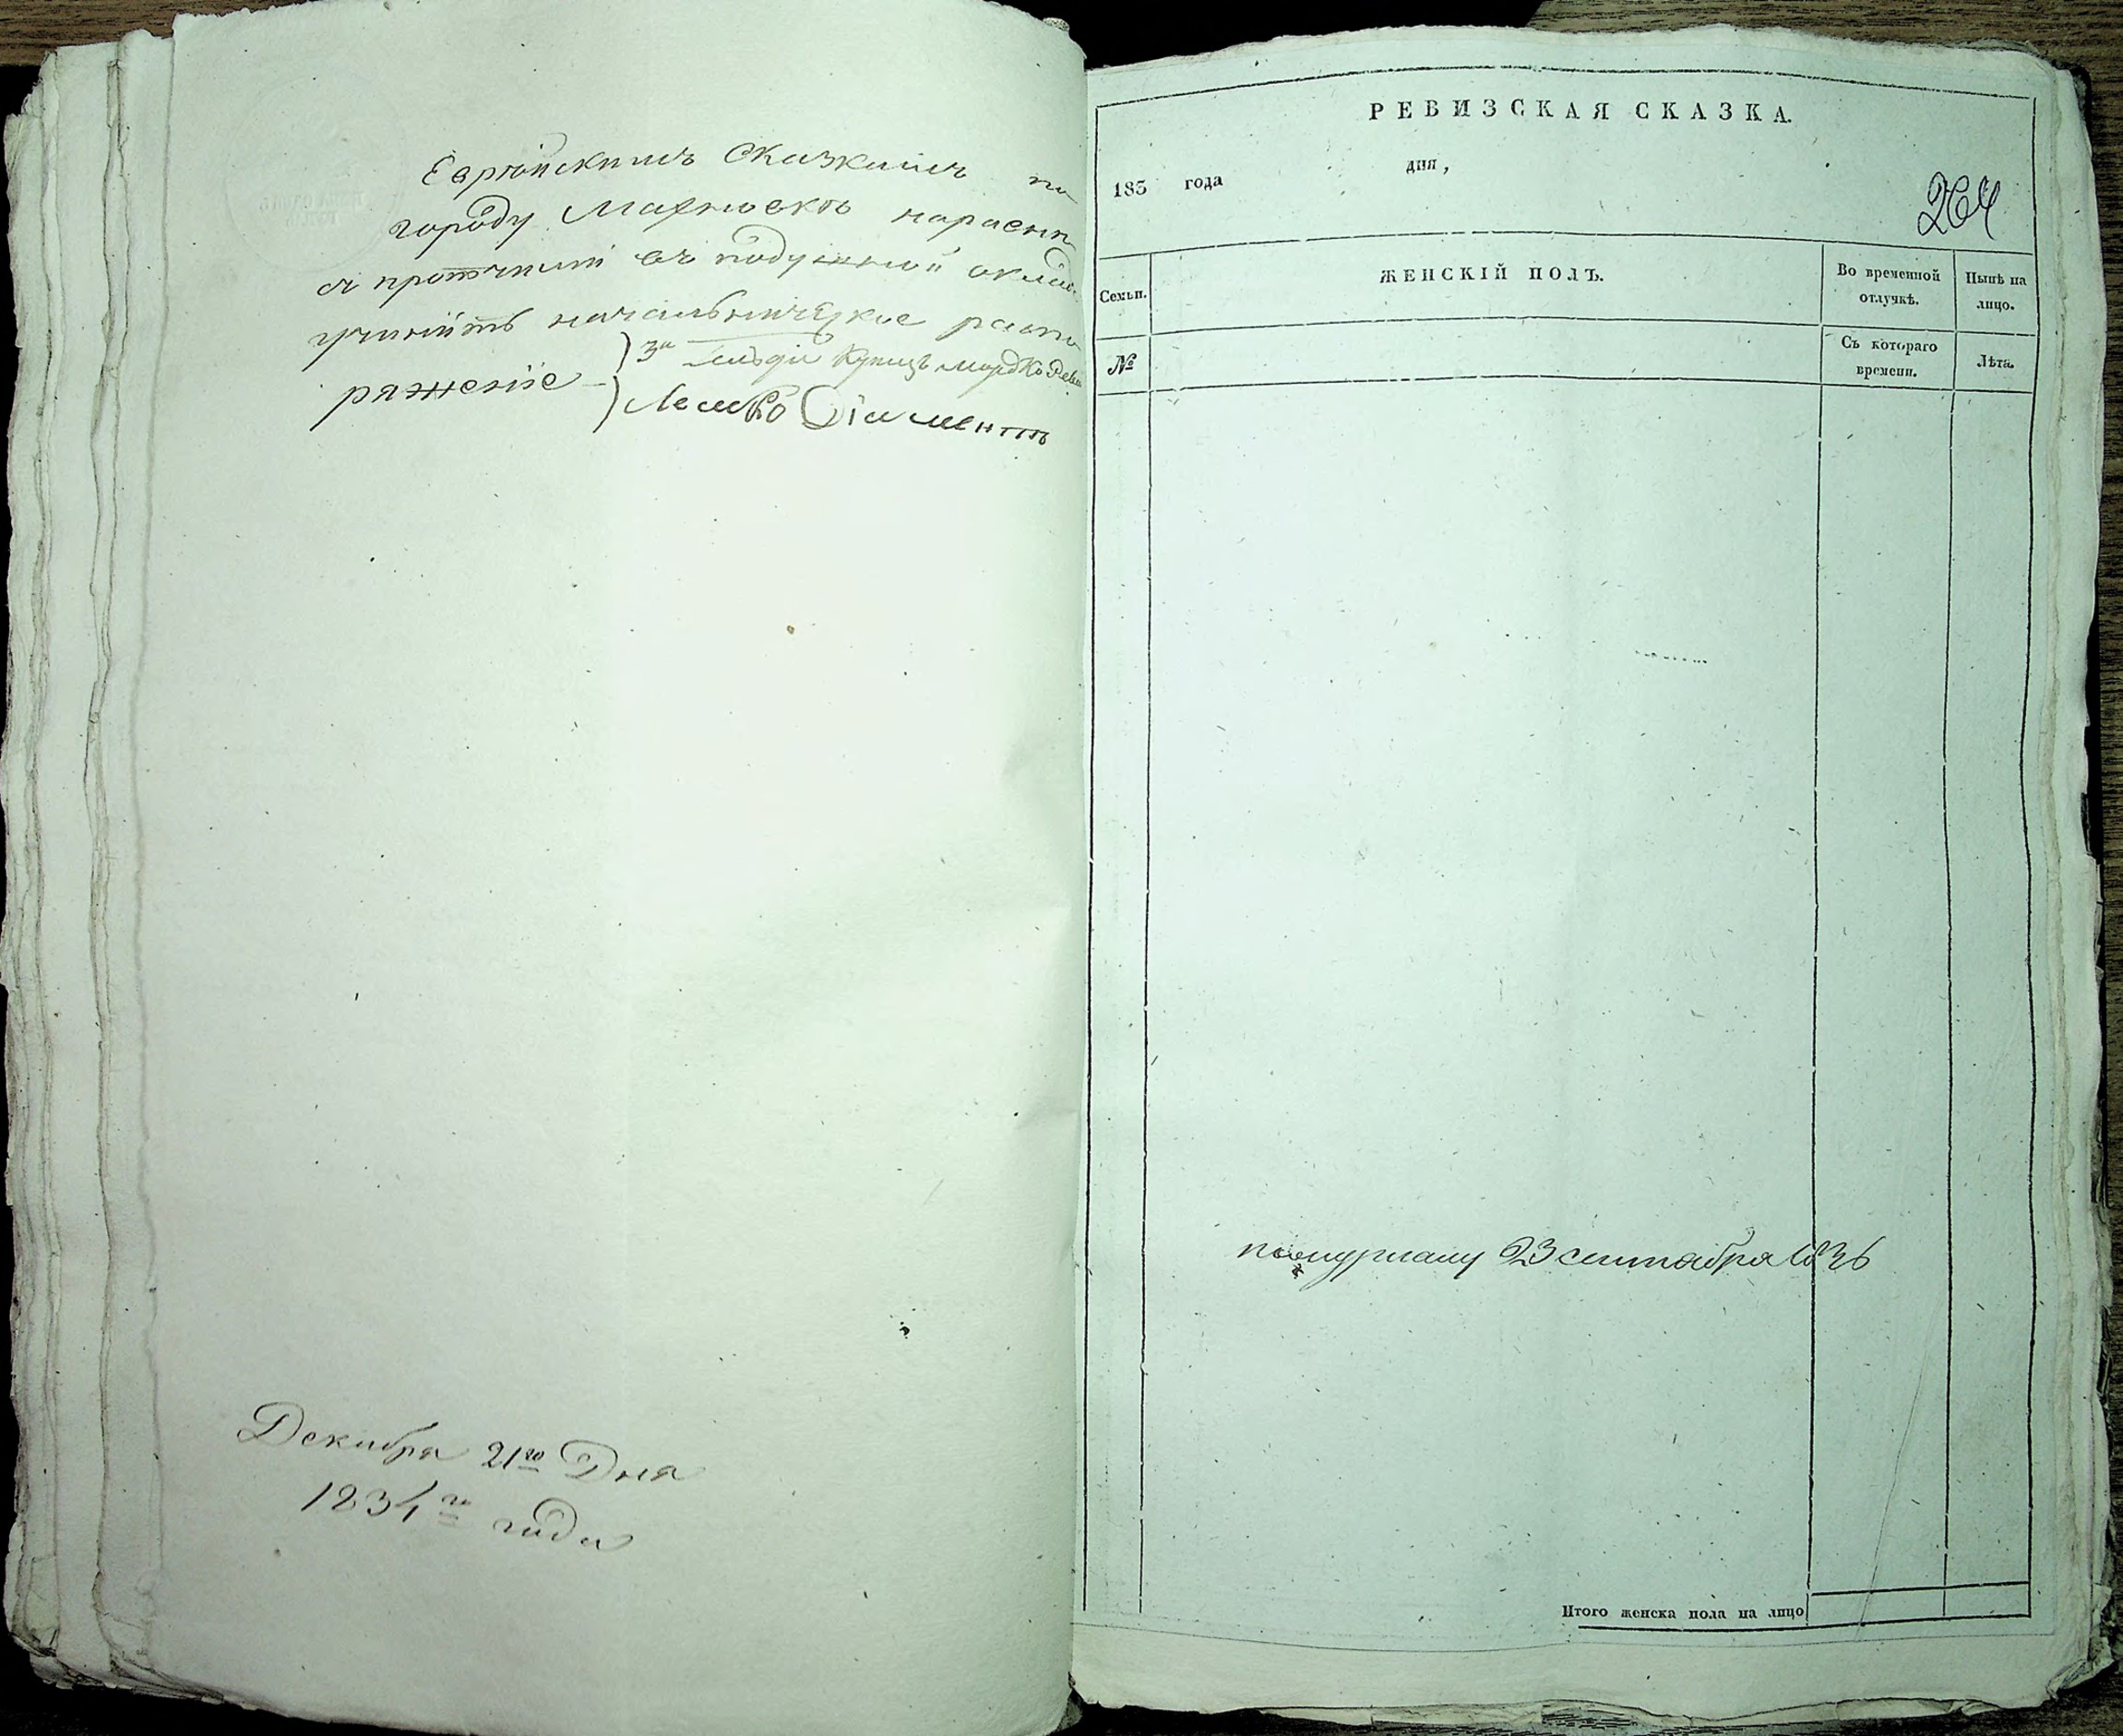 Еврейскимъ Сказкамъ по
городу Махновкъ
съ протчими въ подушной окладъ
учинить начальническое распо
ряженіе
3й Гильдіи Купецъ мордко
Лейбо Діаментъ
Декабря 21го Дня
1834го года
РЕВИЗСКАЯ СКАЗКА.
183 года дня,
264
Семьи. ЖЕНСКІЙ ПОЛЪ. Во временной отлучкѣ. Нынѣ на лицо.
№ Съ котораго времени. Лѣта.
23 сентября 1836
Итого женска пола на лицо